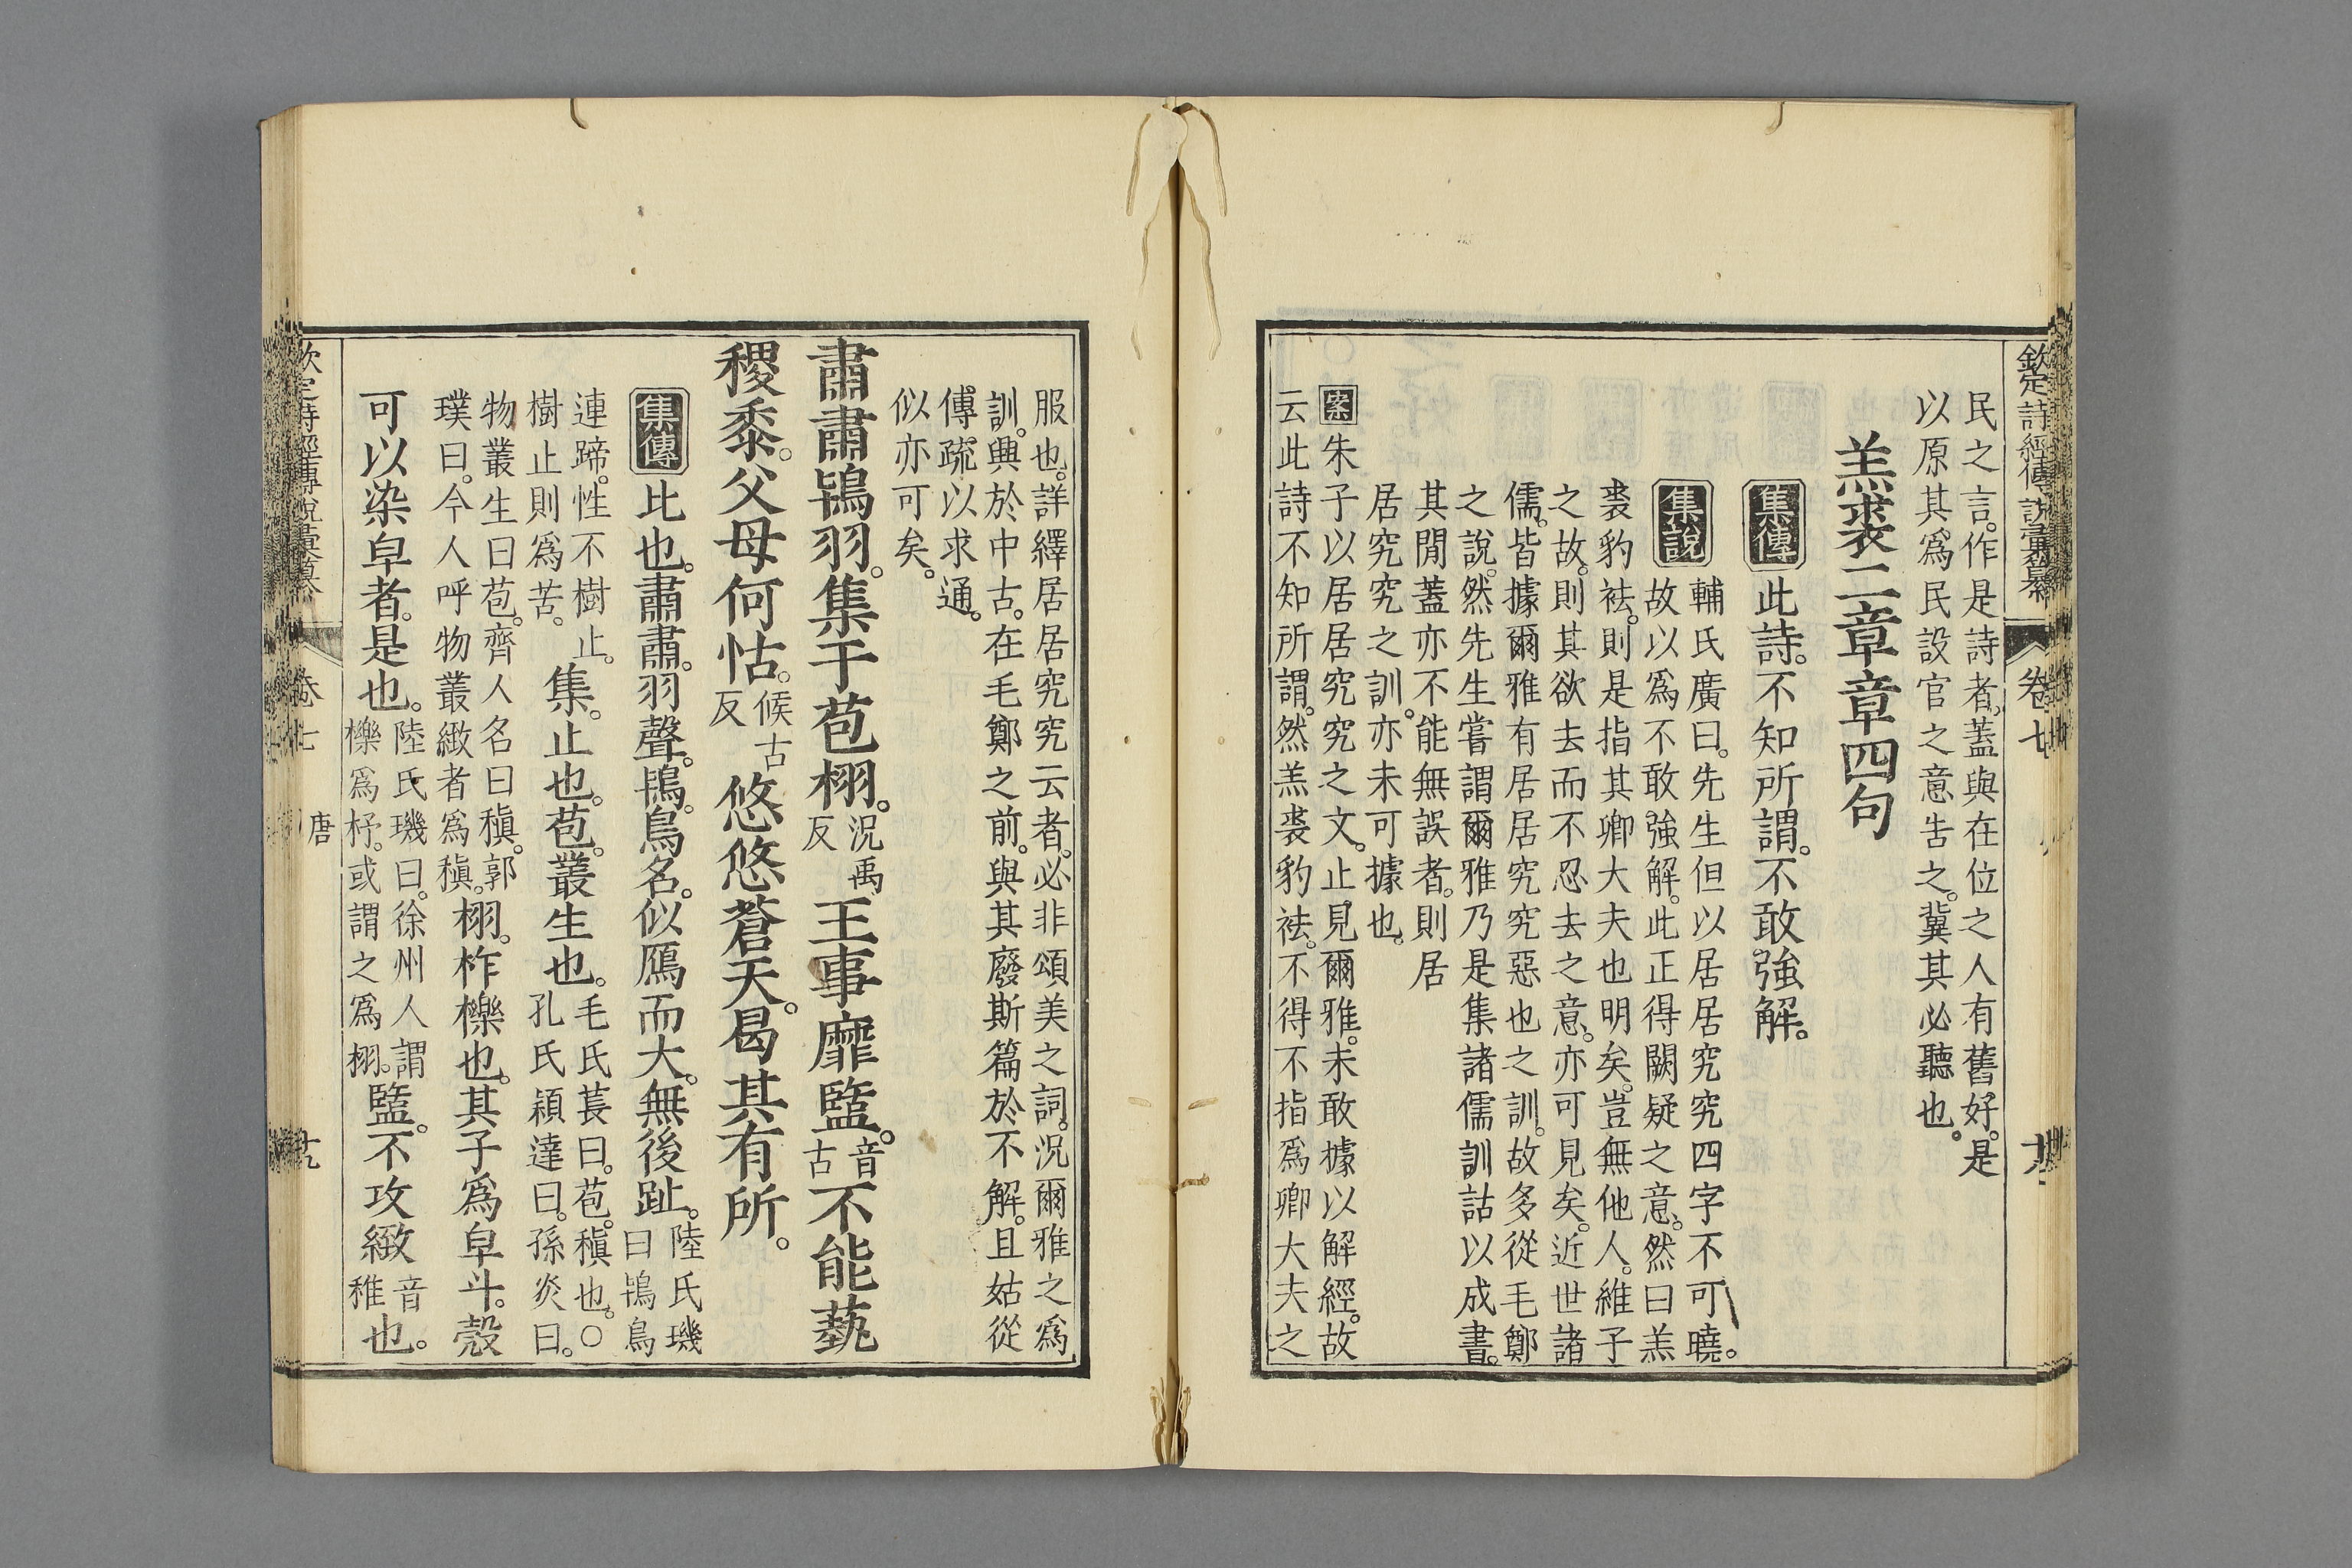 欽定詩經傳說彙纂 卷七
民之言。作是詩者。蓋與在位之人有舊好。是
以原其爲民設官之意吿之。冀其必聽也。
羔裘二章章四句
集傳 此詩。不知所謂。不敢強解。
集說 輔氏廣曰。先生但以居居究究四字不可曉。
故以爲不敢強解。此正得闕疑之意。然曰羔
裘豹袪。則是指其卿大夫也明矣。豈無他人。維子
之故。則其欲去而不忍去之意。亦可見矣。近世諸
儒。皆據爾雅有居居究究惡也之訓。故多從毛鄭
之說。然先生嘗謂爾雅乃是集諸儒訓詁以成書。
其閒蓋亦不能無誤者。則居
居究究之訓。亦未可據也。
案 朱子以居居究究之文。止見爾雅。未敢據以解經。故
云此詩不知所謂。然羔裘豹袪。不得不指爲卿大夫之
服也。詳繹居居究究云者。必非頌美之詞。況爾雅之爲
訓。興於中古。在毛鄭之前。與其廢斯篇於不解。且姑從
傳疏以求通。
似亦可矣。
肅肅鴇羽。集于苞栩。況禹反王事靡盬。音古不能蓺
稷黍。父母何怙。候古反悠悠蒼天。曷其有所。
集傳 比也。肅肅。羽聲。鴇。鳥名。似鴈而大。無後趾。陸氏璣曰鴇鳥
連蹄。性不樹止。樹止則爲苦。集。止也。苞。叢生也。毛氏萇曰。苞。稹也。○孔氏穎達曰。孫炎曰。
物叢生曰苞。齊人名曰稹。郭璞曰。今人呼物叢緻者爲稹。栩。柞櫟也。其子爲皁斗。殼
可以染皁者。是也。陸氏璣曰。徐州人謂櫟爲杼。或謂之爲栩。盬。不攻緻音稚也。
欽定詩經傳說彙纂 卷七 唐 十九